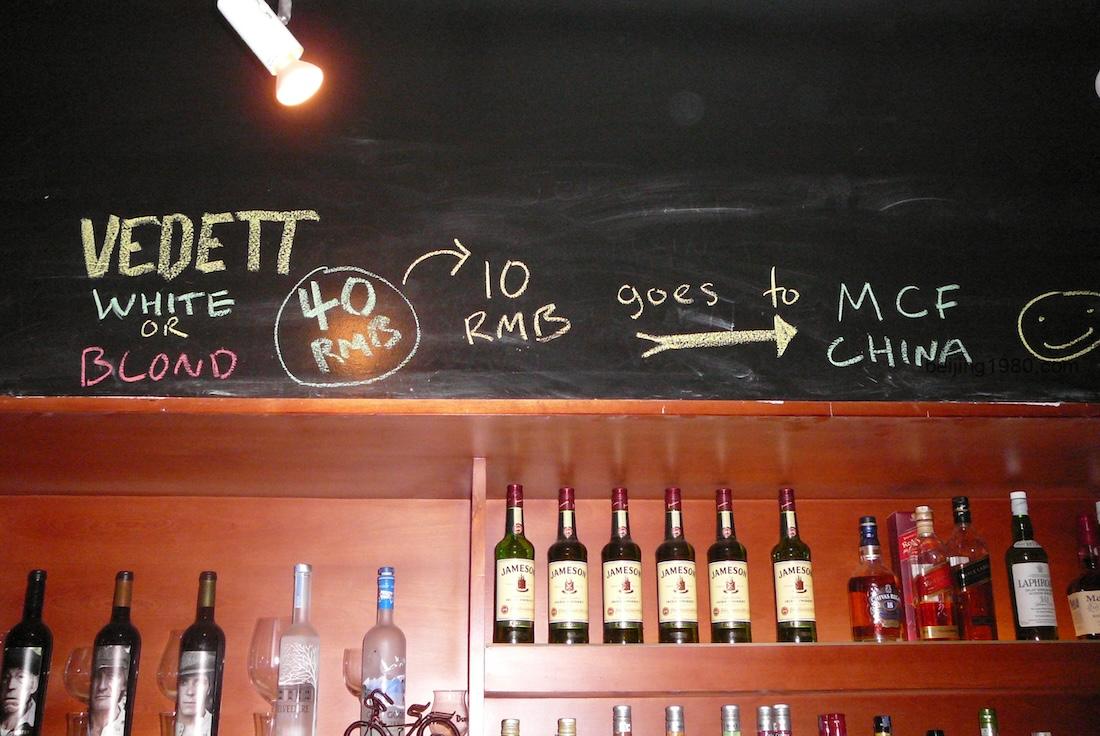 VEDETT
WHITE
OR
BLOND
40
RMB
10
RMB
goes to
MCF
CHINA
beijing1980.com
JAMESON
JAMESON
JAMESON
JAMESON
JAMESON
JAMESON
CHIVAS REGAL
18
LAPHROAIG
BELVEDERE